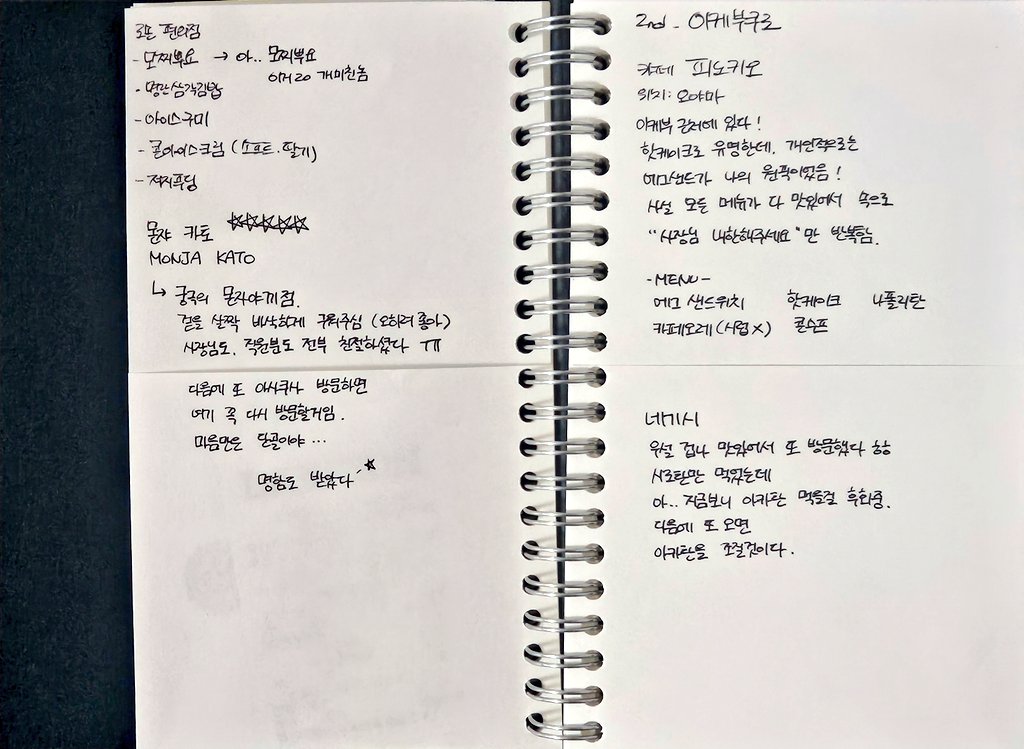 로손 편의점
- 모찌뿌요 → 아.. 모찌뿌요
이거 20 개미친놈
- 명란삼각김밥
- 아이스구미
- 콘아이스크림 (소프트. 딸기)
- 저지푸딩
몬쟈 카토 ☆☆☆☆☆
MONJA KATO
↳ 궁극의 몬자야끼점.
겉을 살짝 바삭하게 구워주심 (오히려 좋아)
사장님도, 직원분도 전부 친절하셨다 ㅠ
다음에 또 아사쿠사 방문하면
여기 꼭 다시 방문할거임.
마음만은 단골이야 ...
명함도 받았다 ☆
2nd - 이케부쿠로
카페 피노키오
위치: 오야마
이케부 근처에 있다!
핫케이크로 유명한데, 개인적으로는
에그샌드가 나의 원픽이었음!
사실 모든 메뉴가 다 맛있어서 속으로
"사장님 내한해주세요"만 반복함.
- MENU -
에그 샌드위치 핫케이크 나폴리탄
카페오레 (시럽 X) 콘스프
네기시
우설 겁나 맛있어서 또 방문했다 핳
시로탄만 먹었는데
아.. 지금보니 아카탄 먹을걸 후회중.
다음에 또 오면
아카탄을 조질것이다.